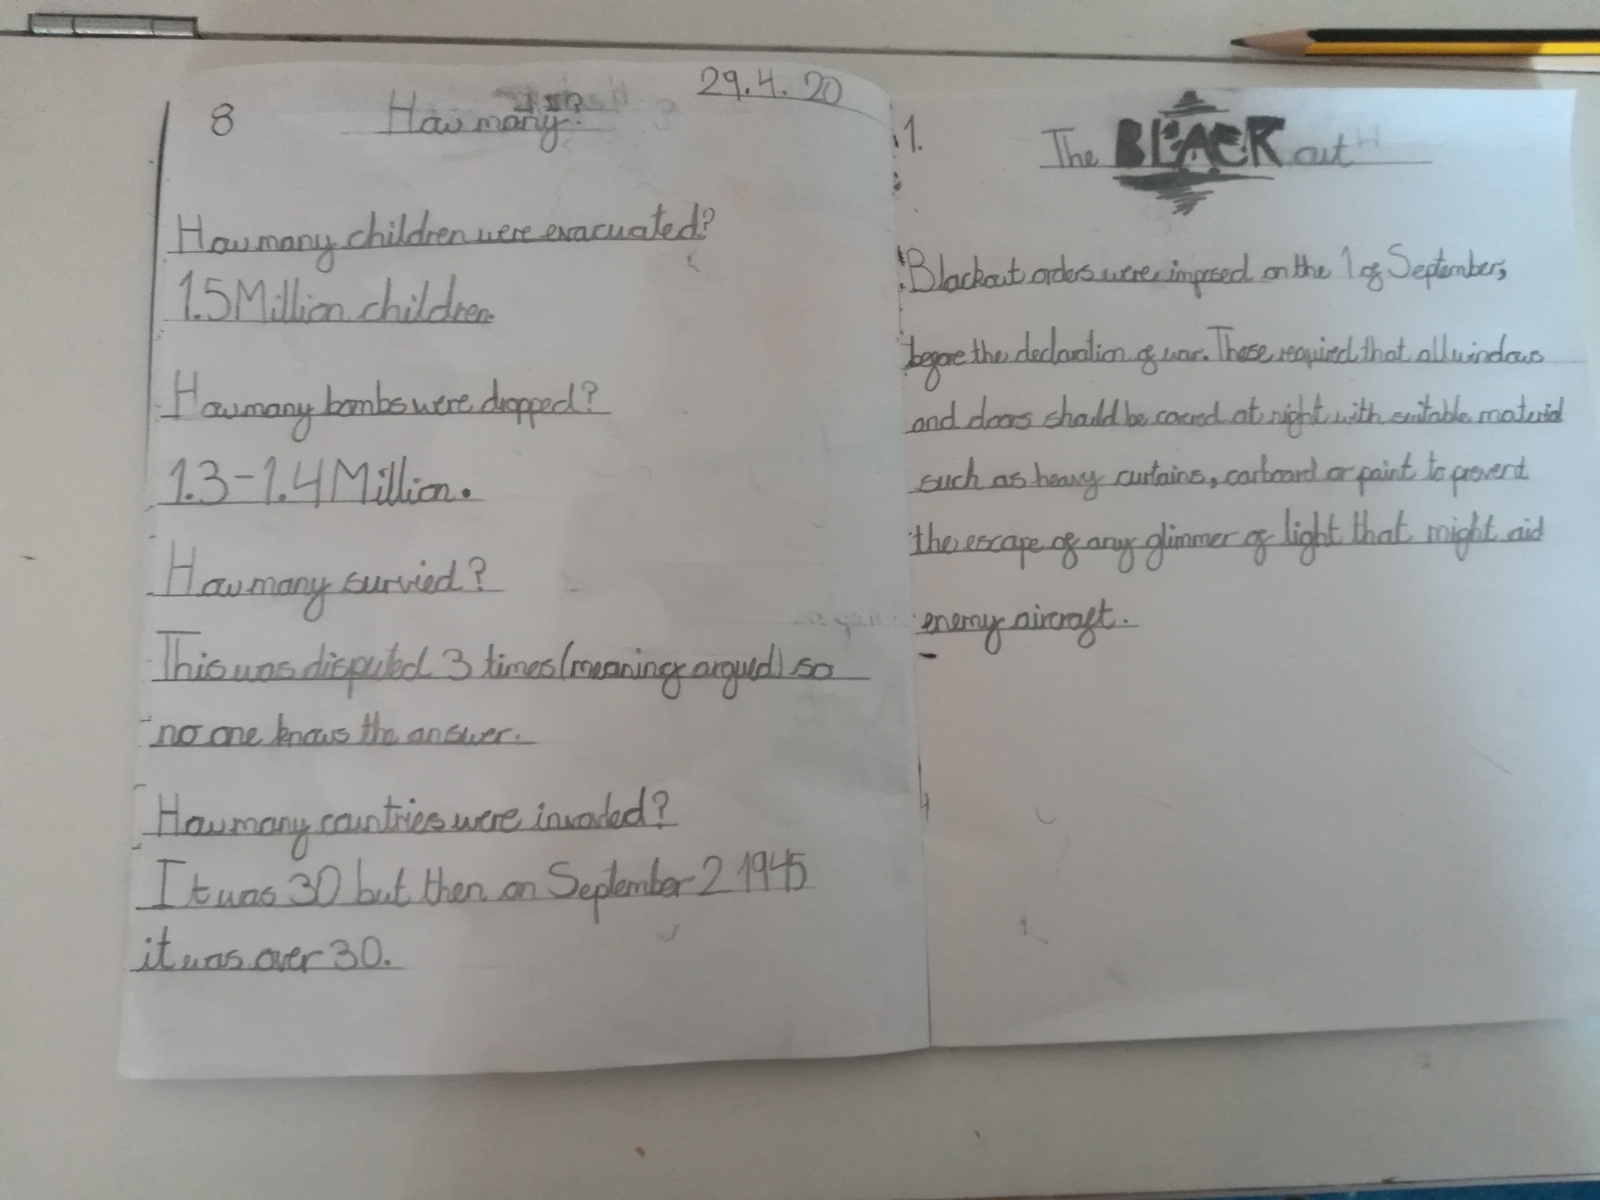 8
How many?
29.4.20
How many children were evacuated?
1.5 Million children.
How many bombs were dropped?
1.3-1.4 Million.
How many survied?
This was disputed 3 times (meaning argued) so
no one knows the answer.
How many countries were invaded?
It was 30 but then on September 2 1945
it was over 30.
1.
The BLACK out
Blackout orders were imposed on the 1 of September,
before the declaration of war. These required that all windows
and doors should be covered at night with suitable material
such as heavy curtains, carboard or paint to prevent
the escape of any glimmer of light that might aid
enemy aircraft.